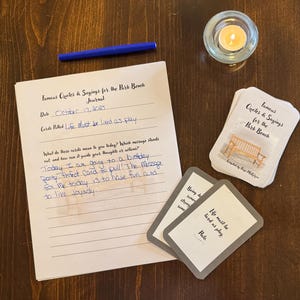 Famous Quotes & Sayings
for the Park Bench
Journal
Date October 17, 2021
Cards Pulled Life must be lived as play
What do these cards mean to you today? Which message stands
out and how can it guide your thoughts or actions?
Today I am going to a birthday
party. Perfect card to pull! The message
for me today is to have fun and
to live joyously
Famous
Quotes & Sayings
for the
Park Bench
Life must be
lived as play.
Plato
Being